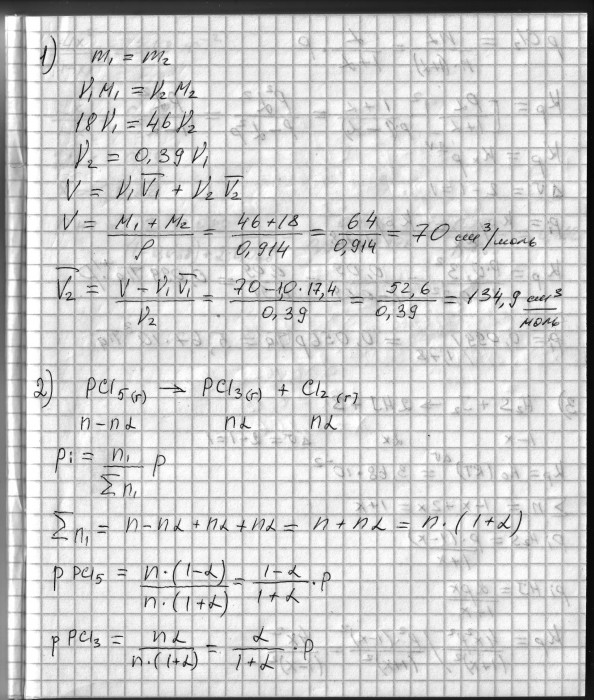 1) m₁ = m₂
ν₁M₁ = ν₂M₂
18ν₁ = 46ν₂
ν₂ = 0,39ν₁
V = ν₁V̅₁ + ν₂V̅₂
V = (M₁ + M₂)/ρ = (46+18)/0,914 = 64/0,914 = 70 см³/моль
V̅₂ = (V − ν₁V̅₁)/ν₂ = (70−1,0·17,4)/0,39 = 52,6/0,39 = 134,9 см³/моль
2) PCl₅(г) → PCl₃(г) + Cl₂(г)
n−nα nα nα
pi = n₁/∑n₁ p
∑n₁ = n−nα+nα+nα = n+nα = n·(1+α)
p PCl₅ = n·(1−α)/n·(1+α) = (1−α)/(1+α)·p
p PCl₃ = nα/n·(1+α) = α/(1+α)·p